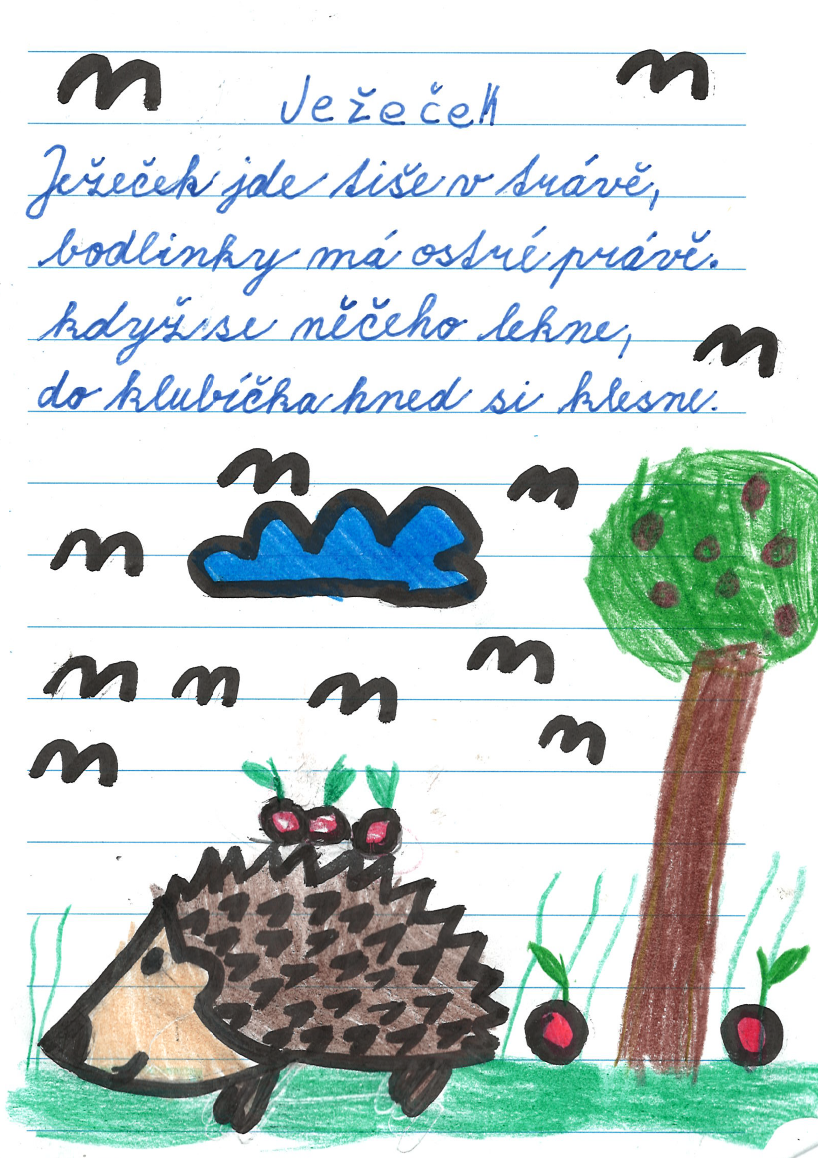 Ježeček
Ježeček jde tiše v trávě,
bodlinky má ostré právě.
když se něčeho lekne,
do klubíčka hned si klesne.